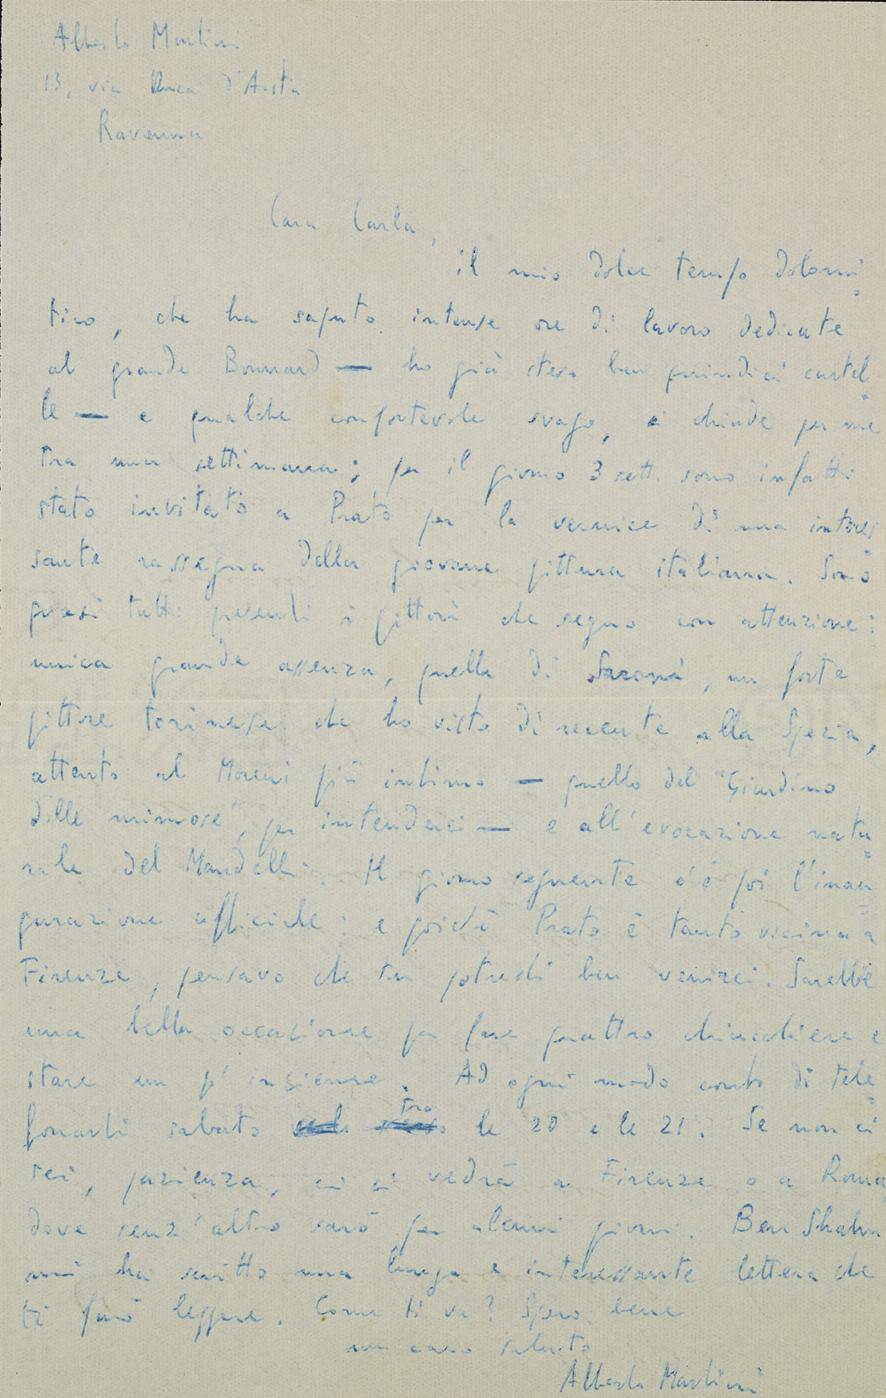 Alberto Martini
13, via Duca d'Aosta
Ravenna
Cara Carla,
il mio dolce tempo dolomi=
tico, che ha saputo intense ore di lavoro dedicate
al grande Bonnard — ho già steso ben quindici cartel=
le — e qualche confortevole svago, si chiude per me
tra una settimana; per il giorno 3 sett. sono infatti
stato invitato a Prato per la vernice di una interes
sante rassegna della giovane pittura italiana. Sono
quasi tutti presenti i pittori che seguo con attenzione:
unica grande assenza, quella di Saroni, un forte
pittore torinese che ho visto di recente alla Spezia,
attento al Moreni più intimo — quello del "Giardino
delle mimose", per intenderci — e all'evocazione natu=
rale del Mandelli. Il giorno seguente c'è poi l'inau=
gurazione ufficiale: e poiché Prato è tanto vicina a
Firenze, pensavo che tu potresti ben venirci. Sarebbe
una bella occasione per fare quattro chiacchiere e
stare un po' insieme. Ad ogni modo conto di tele=
fonarti sabato tra le 20 e le 21. Se non ci
sei, pazienza, ci si vedrà a Firenze o a Roma
dove senz'altro sarò per alcuni giorni. Ben Shahn
mi ha scritto una lunga e interessante lettera che
ti farò leggere. Come ti va? Spero bene
un caro saluto
Alberto Martini